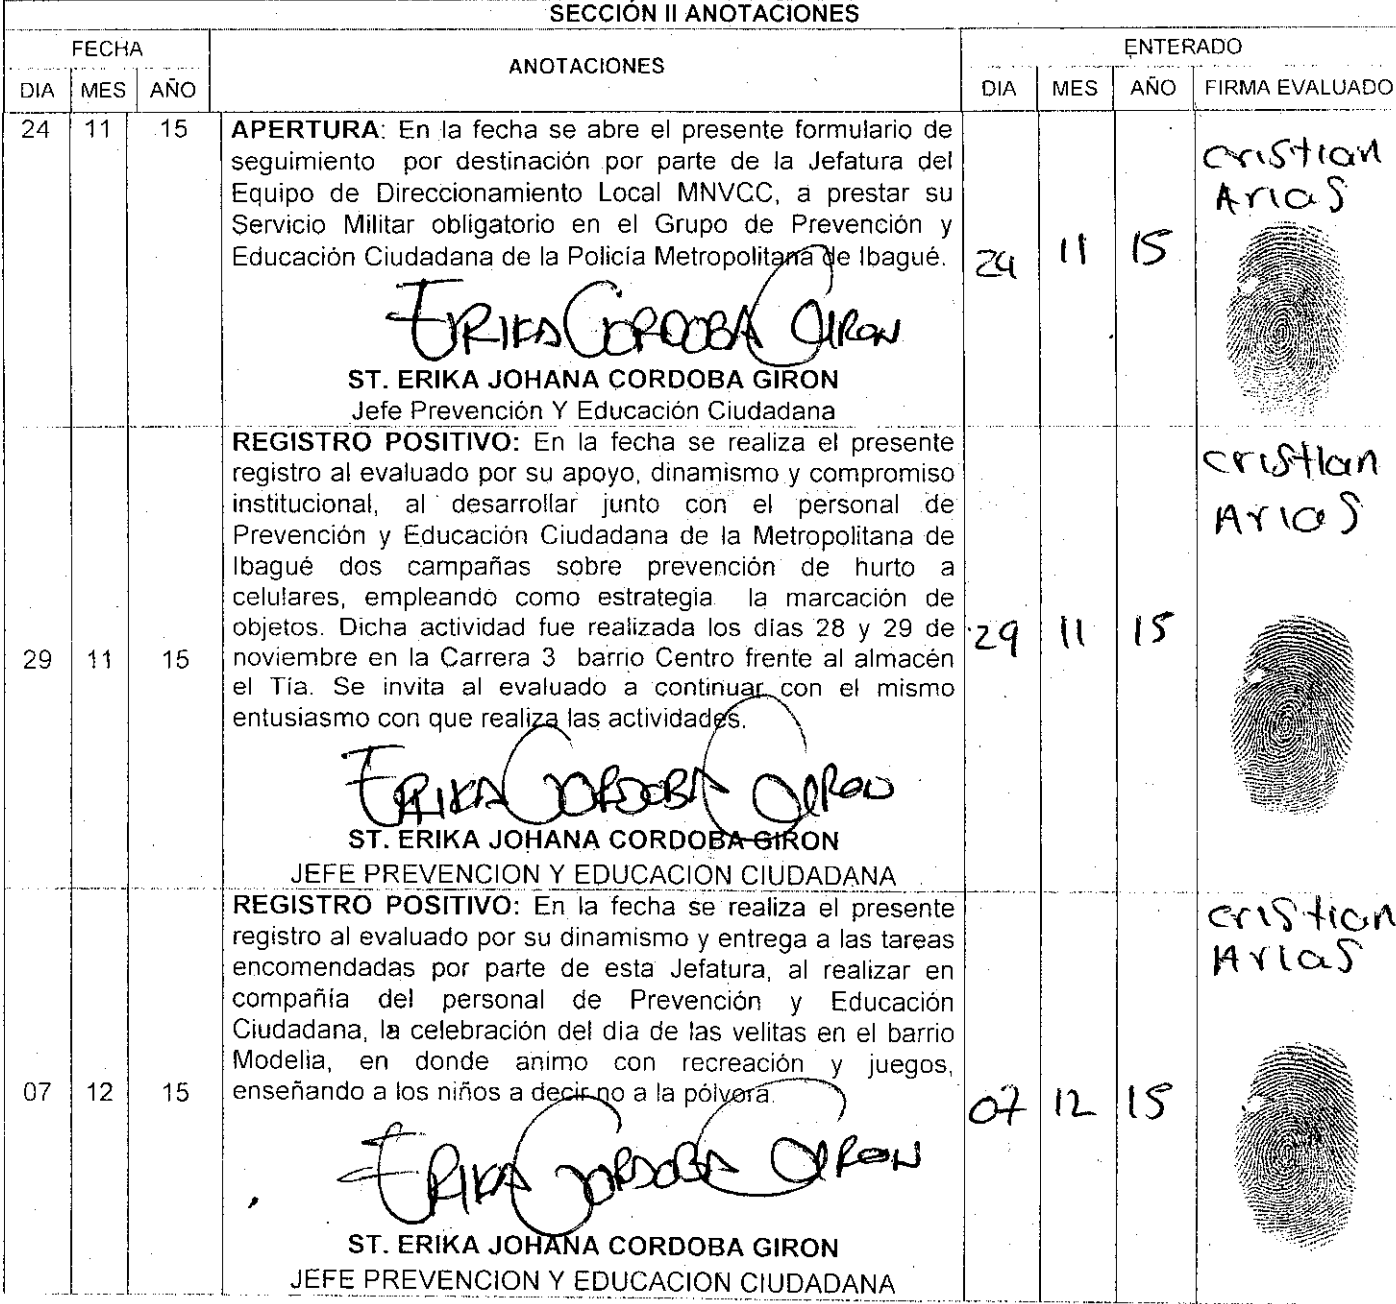 SECCIÓN II ANOTACIONES
FECHA
ANOTACIONES
ENTERADO
DIA MES AÑO
DIA MES AÑO FIRMA EVALUADO
24 11 15
APERTURA: En la fecha se abre el presente formulario de
seguimiento por destinación por parte de la Jefatura del
Equipo de Direccionamiento Local MNVCC, a prestar su
Servicio Militar obligatorio en el Grupo de Prevención y
Educación Ciudadana de la Policía Metropolitana de Ibagué.
ERIKA CORDOBA GIRON
ST. ERIKA JOHANA CORDOBA GIRON
Jefe Prevención Y Educación Ciudadana
24 11 15
cristian
Arias
29 11 15
REGISTRO POSITIVO: En la fecha se realiza el presente
registro al evaluado por su apoyo, dinamismo y compromiso
institucional, al desarrollar junto con el personal de
Prevención y Educación Ciudadana de la Metropolitana de
Ibagué dos campañas sobre prevención de hurto a
celulares, empleando como estrategia la marcación de
objetos. Dicha actividad fue realizada los días 28 y 29 de
noviembre en la Carrera 3 barrio Centro frente al almacén
el Tía. Se invita al evaluado a continuar con el mismo
entusiasmo con que realiza las actividades.
ERIKA CORDOBA GIRON
ST. ERIKA JOHANA CORDOBA GIRON
JEFE PREVENCION Y EDUCACION CIUDADANA
29 11 15
cristian
Arias
07 12 15
REGISTRO POSITIVO: En la fecha se realiza el presente
registro al evaluado por su dinamismo y entrega a las tareas
encomendadas por parte de esta Jefatura, al realizar en
compañía del personal de Prevención y Educación
Ciudadana, la celebración del dia de las velitas en el barrio
Modelia, en donde animo con recreación y juegos,
enseñando a los niños a decir no a la pólvora.
ERIKA CORDOBA GIRON
ST. ERIKA JOHANA CORDOBA GIRON
JEFE PREVENCION Y EDUCACION CIUDADANA
07 12 15
cristian
Arias